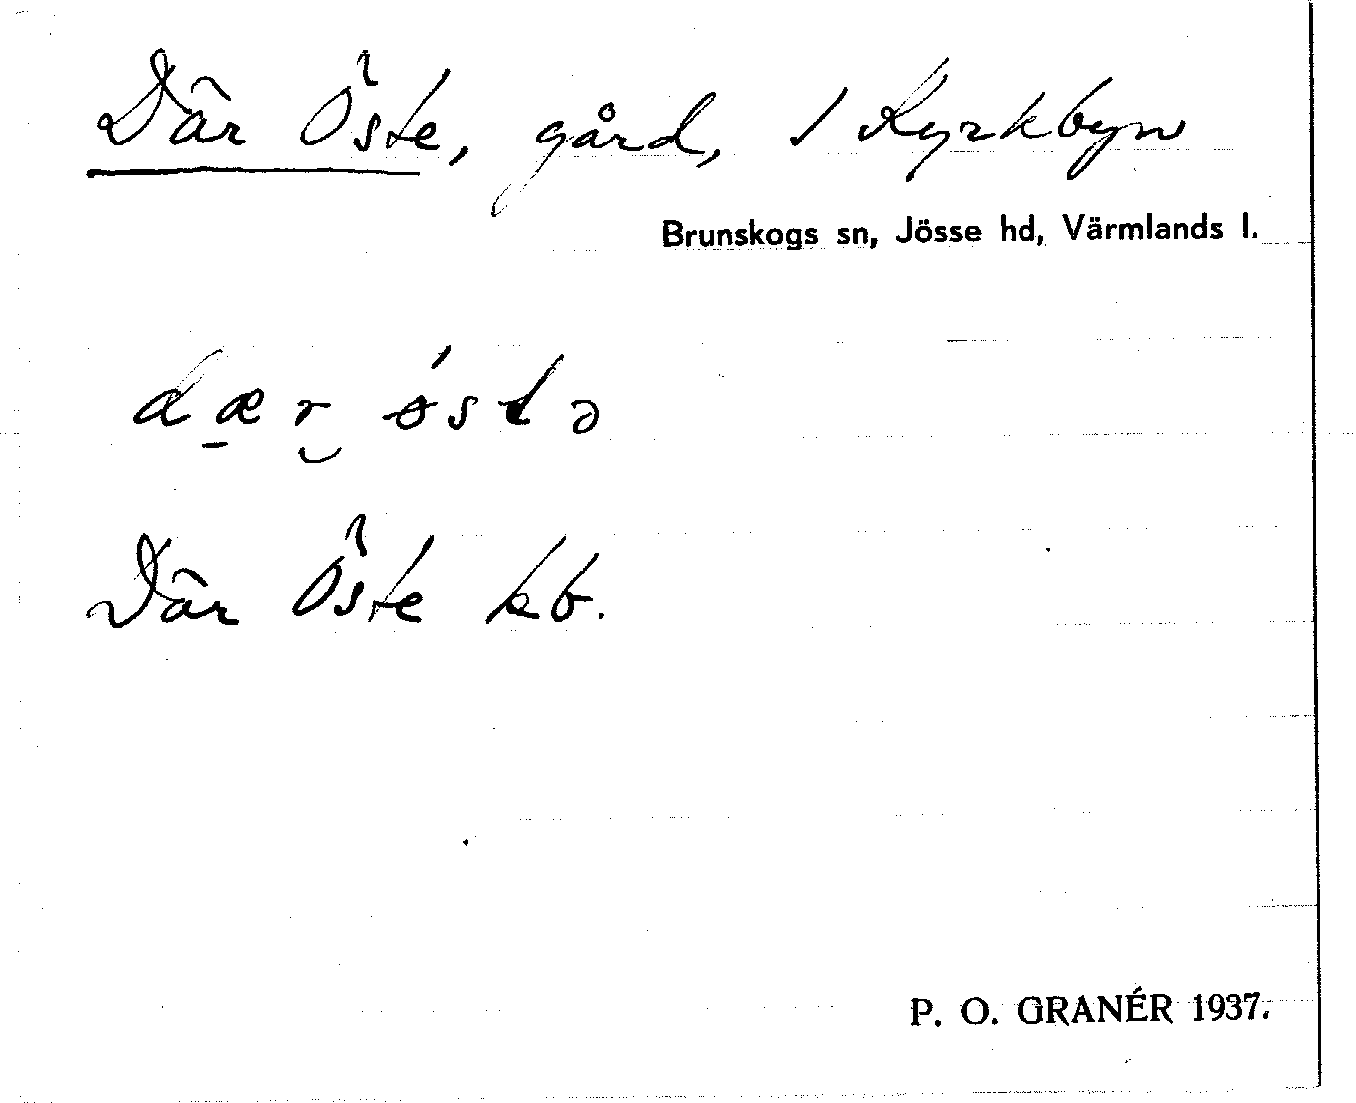 Där Öste, gård, 1 Kyrkbyn
Brunskogs sn, Jösse hd, Värmlands l.
dæ̠r̮ ǿstə
Där Öste kb.
P. O. GRANÉR 1937.